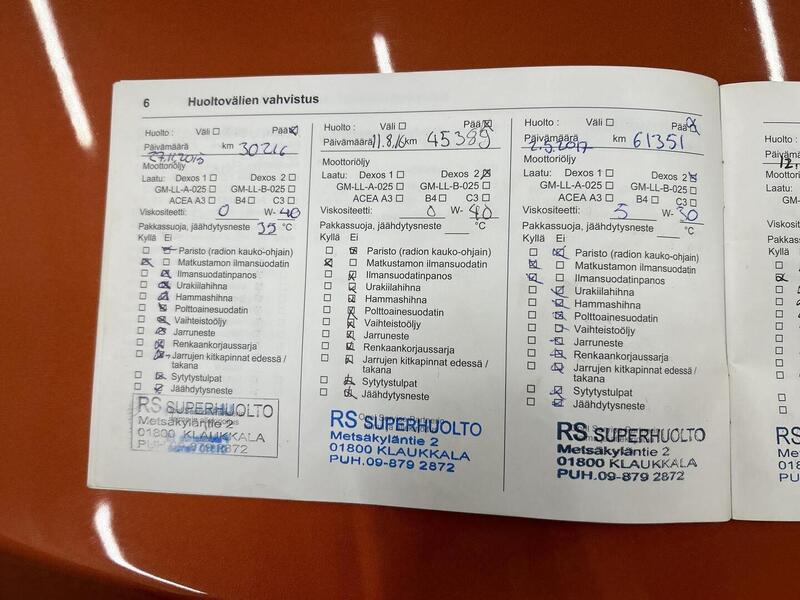 6 Huoltovälien vahvistus
Huolto : Väli ☐ Pää ☒
Päivämäärä km 30216
27.11.2015
Moottoriöljy
Laatu: Dexos 1 ☐ Dexos 2 ☐
GM-LL-A-025 ☐ GM-LL-B-025 ☐
ACEA A3 ☐ B4 ☐ C3 ☐
Viskositeetti: 0 W- 40
Pakkassuoja, jäähdytysneste 35 °C
Kyllä Ei
Paristo (radion kauko-ohjain)
Matkustamon ilmansuodatin
Ilmansuodatinpanos
Urakiilahihna
Hammashihna
Polttoainesuodatin
Vaihteistoöljy
Jarruneste
Renkaankorjaussarja
Jarrujen kitkapinnat edessä /
takana
Sytytystulpat
Jäähdytysneste
RS SUPERHUOLTO
Metsäkyläntie 2
01800 KLAUKKALA
PUH.09-879
Huolto : Väli ☐ Pää ☒
Päivämäärä 11.8.16 km 45389
Moottoriöljy
Laatu: Dexos 1 ☐ Dexos 2 ☒
GM-LL-A-025 ☐ GM-LL-B-025 ☐
ACEA A3 ☐ B4 ☐ C3 ☐
Viskositeetti: 0 W- 40
Pakkassuoja, jäähdytysneste °C
Kyllä Ei
Paristo (radion kauko-ohjain)
Matkustamon ilmansuodatin
Ilmansuodatinpanos
Urakiilahihna
Hammashihna
Polttoainesuodatin
Vaihteistoöljy
Jarruneste
Renkaankorjaussarja
Jarrujen kitkapinnat edessä /
takana
Sytytystulpat
Jäähdytysneste
RS SUPERHUOLTO
Metsäkyläntie 2
01800 KLAUKKALA
PUH.09-879 2872
Huolto : Väli ☐ Pää ☒
Päivämäärä km 61351
2.5.2017
Moottoriöljy
Laatu: Dexos 1 ☐ Dexos 2 ☒
GM-LL-A-025 ☐ GM-LL-B-025 ☐
ACEA A3 ☐ B4 ☐ C3 ☐
Viskositeetti: 5 W- 30
Pakkassuoja, jäähdytysneste °C
Kyllä Ei
Paristo (radion kauko-ohjain)
Matkustamon ilmansuodatin
Ilmansuodatinpanos
Urakiilahihna
Hammashihna
Polttoainesuodatin
Vaihteistoöljy
Jarruneste
Renkaankorjaussarja
Jarrujen kitkapinnat edessä /
takana
Sytytystulpat
Jäähdytysneste
RS SUPERHUOLTO
Metsäkyläntie 2
01800 KLAUKKALA
PUH.09-879 2872
Huolto :
Päivämä
12.
Moottori
Laatu:
Viskosite
Pakkass
Kyllä
RS
Mets
0180
PUH